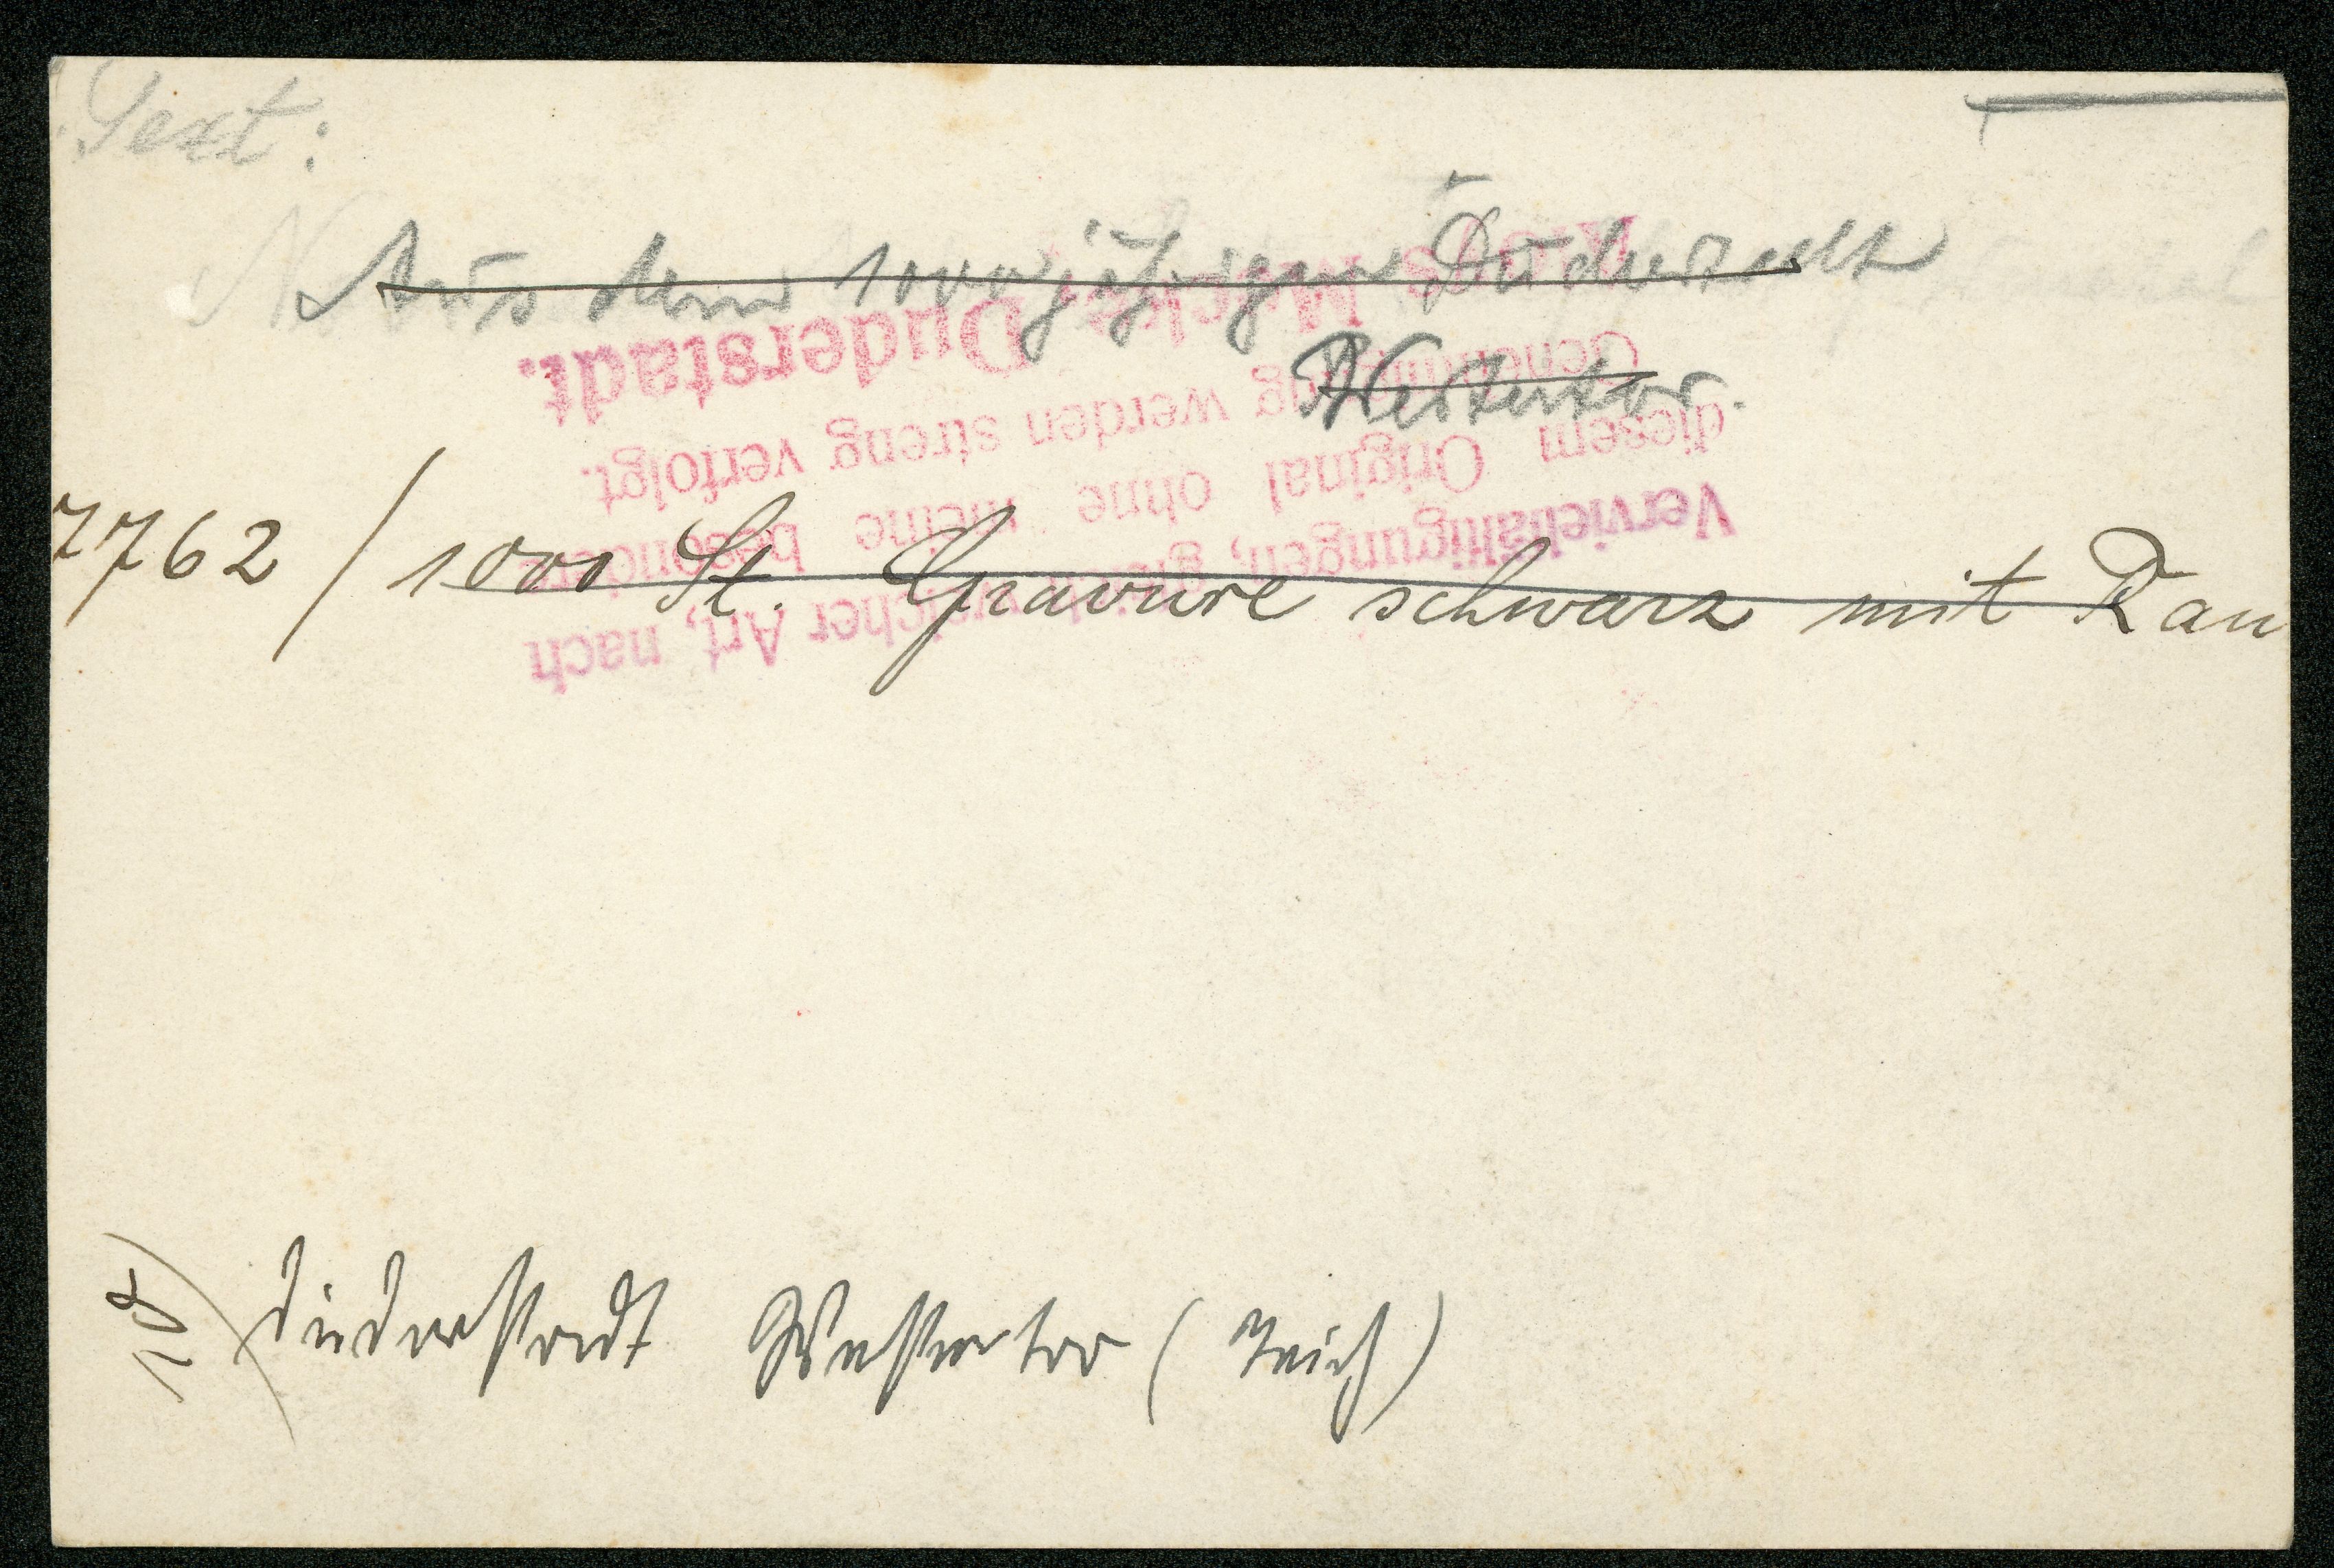 Text:
Aus dem 1000jährigen Duderstadt
Westertor.
7762 / 1000 St. Gravure schwarz mit Ran
Vervielfältigungen, gleich welcher Art, nach
diesem Original ohne meine besondere
Genehmigung werden streng verfolgt.
Duderstadt.
10) Duderstadt Westertor (Teich)